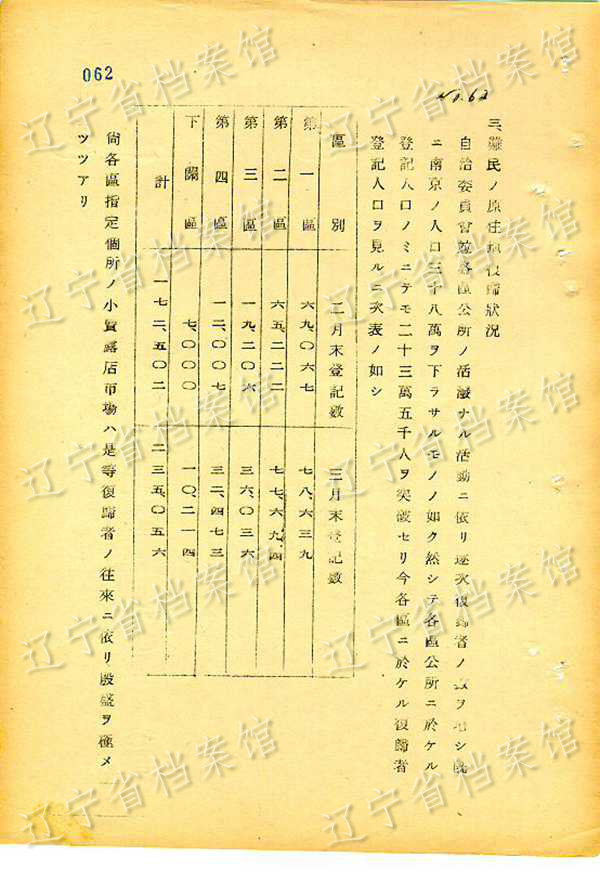 062
No. 62
三、難民ノ原住地復歸狀況
自治委員會竝各區公所ノ活潑ナル活動ニ依リ逐次復歸者ノ数ヲ増シ
ニ南京ノ人口三十八萬ヲ下ラサルモノノ如ク然シテ各區公所ニ於ケル
登記人口ノミニテモ二十三萬五千人ヲ突破セリ今各區ニ於ケル復歸者
登記人口ヲ見ルニ次表ノ如シ
區別 二月末登記数 三月末登記数
第一區 六九、〇六七 七八、六三九
第二區 六五、二二二 七七、六九四
第三區 一九、二〇六 三六、〇三六
第四區 一二、〇〇七 三二、四七三
下關區 七、〇〇〇 一〇、二一四
計 一七二、五〇二 二三五、〇五六
尙各區指定個所ノ小賣露店市場ハ是等復歸者ノ往來ニ依リ殷盛ヲ極メ
ツツアリ
辽宁省档案馆
辽宁省档案馆
辽宁省档案馆
辽宁省档案馆
辽宁省档案馆
辽宁省档案馆